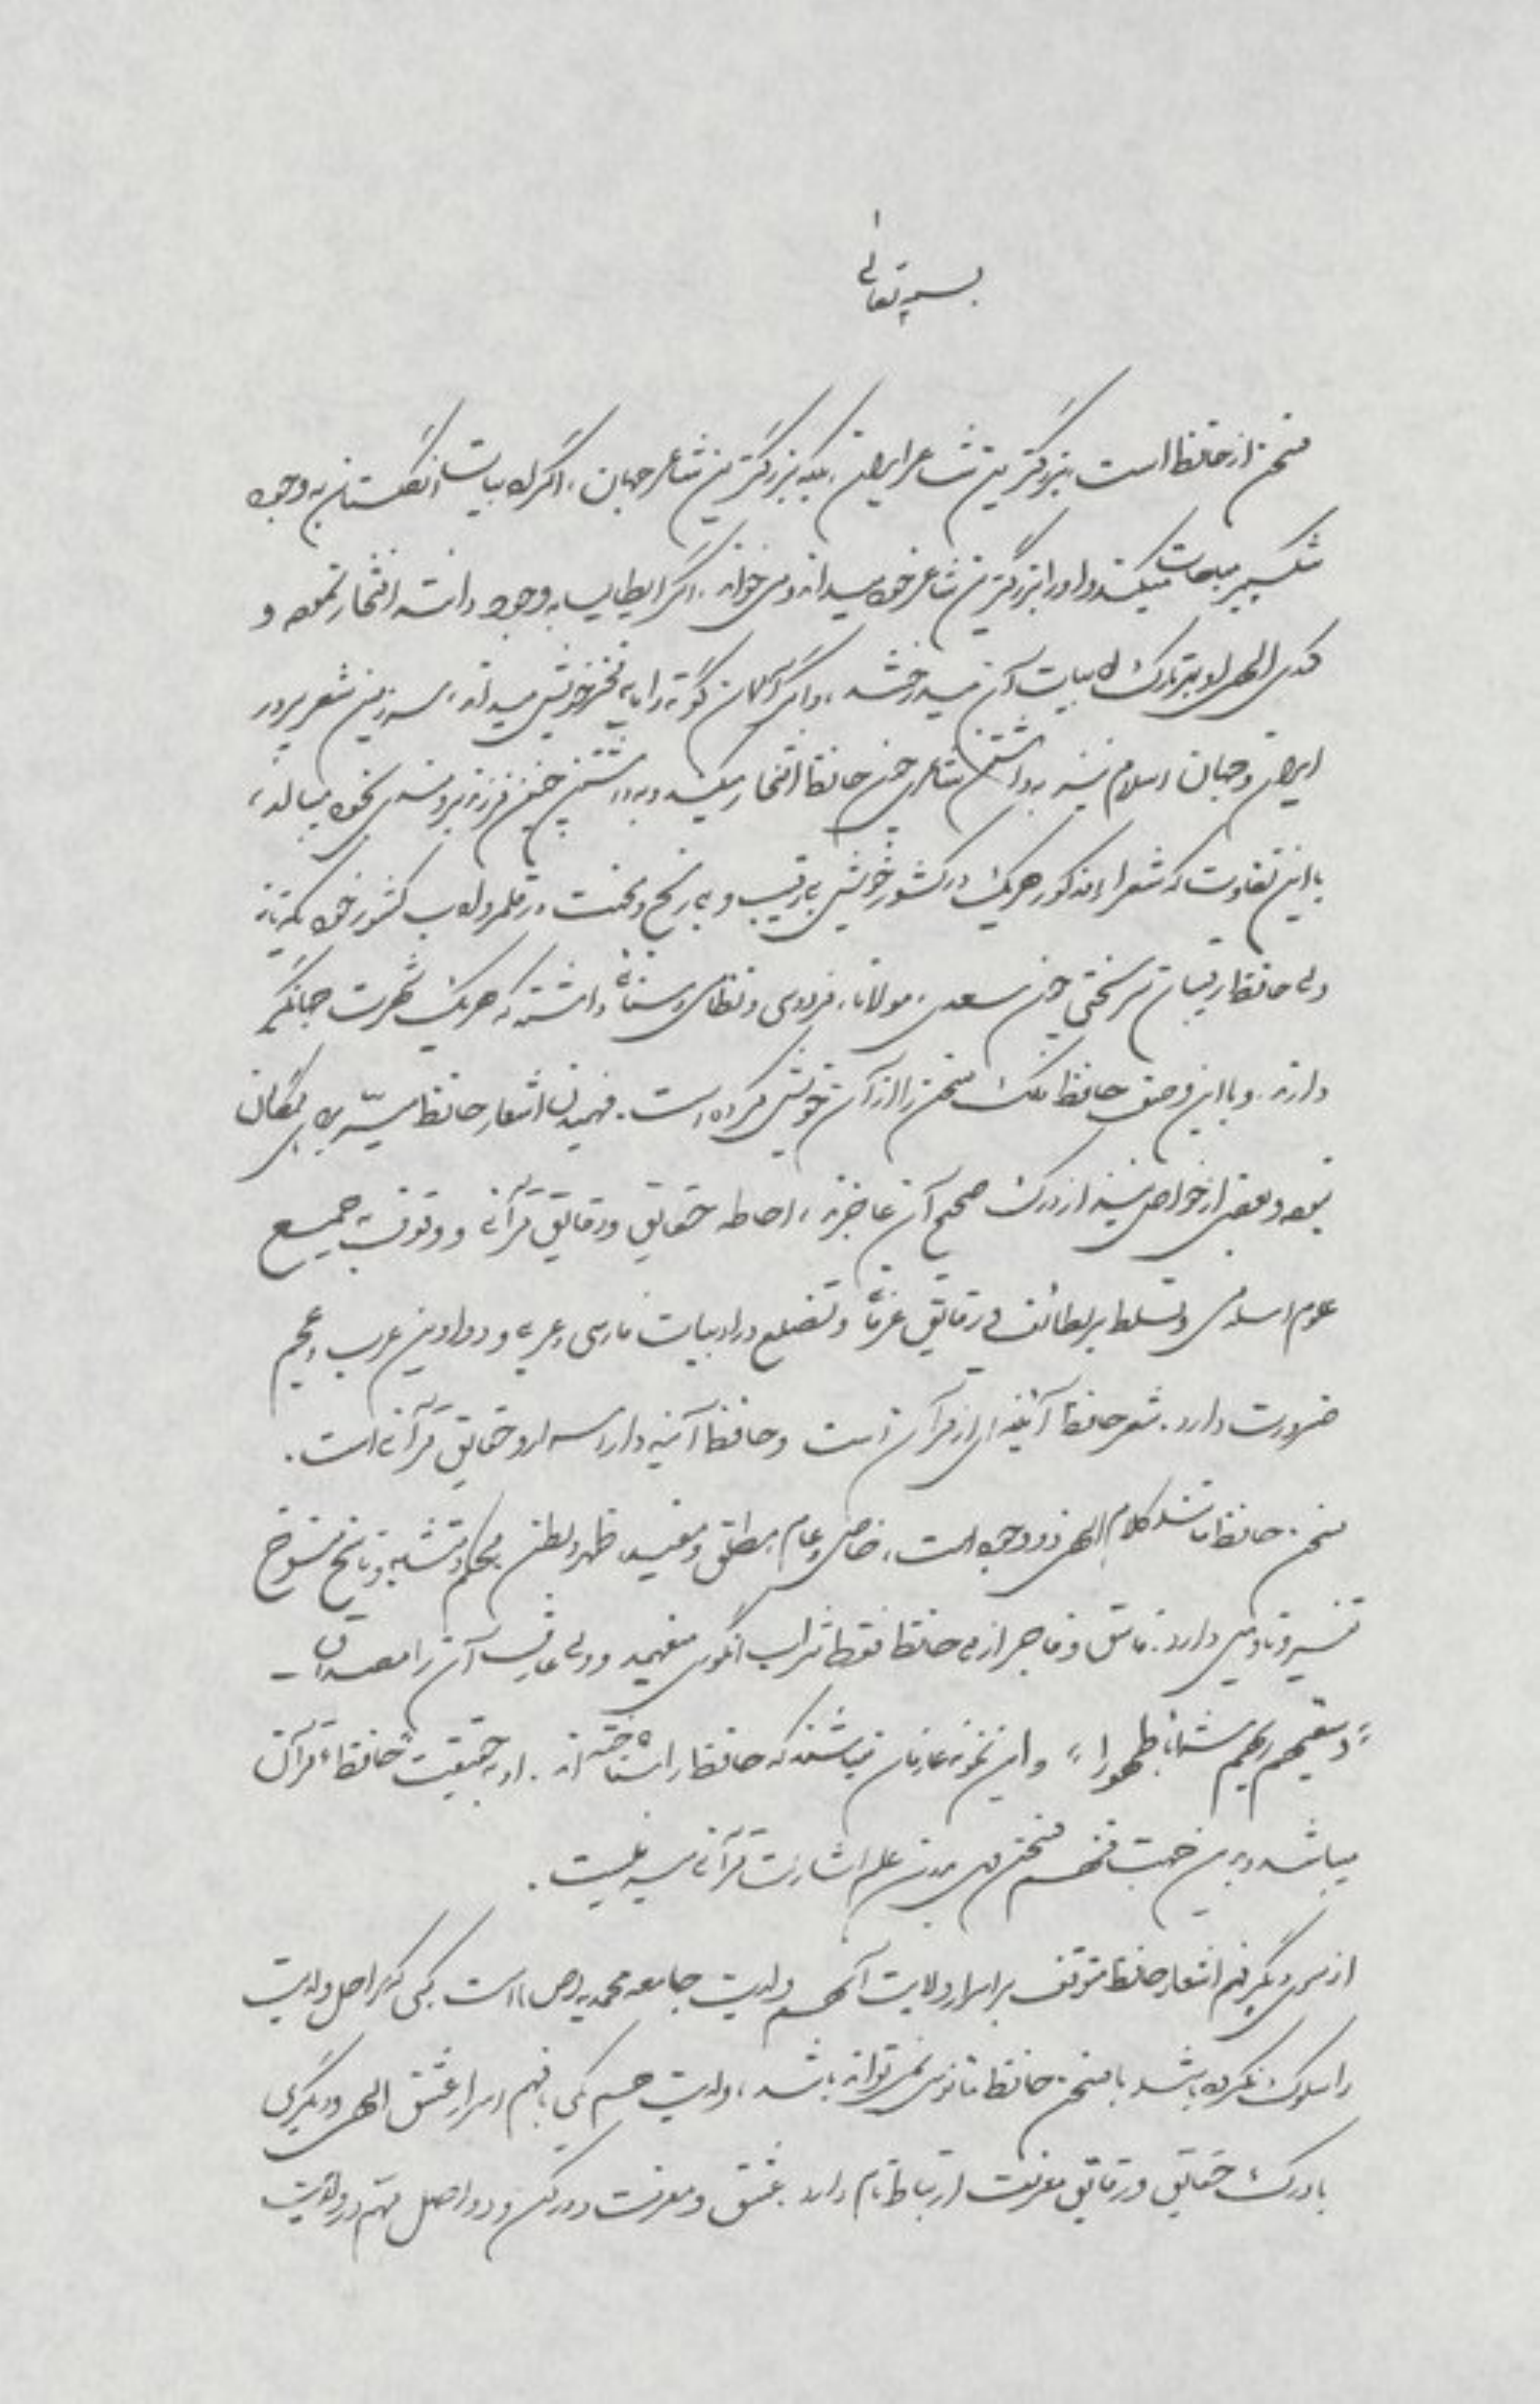 بسمه تعالی
سخن از حافظ است بزرگترین شاعر ایران، بلکه بزرگترین شاعر جهان، اگر ادبیات انگلستان به وجود
شکسپیر مباهات میکند و او را بزرگترین شاعر خود میداند و می‌خواند، اگر ایطالیا به وجود دانته افتخار نموده و
کمدی الهی او بر تارک ادبیات آن میدرخشد، و اگر آلمان گوته را مایه فخر خویش میداند، سرزمین شعر پرور
ایران و جهان اسلام نیز به داشتن شاعری چون حافظ افتخار میکند و به داشتن چنین فرزند برومندی بخود میبالد،
با این تفاوت که شعراء مذکور هریک در کشور خویش بی رقیب و بی رنج و محنت در قلمرو ادب کشور خود یکه تازند
ولی حافظ رقیبان سرسختی چون سعدی، مولانا، فردوسی و نظامی و سنائی داشته که هریک شهرت جهانگیر
دارند. و با این وصف حافظ ملک سخن را از آن خویش کرده است. فهمیدن اشعار حافظ میسّر برای همگان
نبوده و بعضی از خواص نیز از درک صحیح آن عاجزند، احاطه حقایق و دقایق قرآنی و وقوف به جمیع
علوم اسلامی و تسلط بر لطائف و دقایق عرفا و تضلع در ادبیات فارسی و عربی و دواوین عرب و عجم
ضرورت دارد. شعر حافظ آئینه‌ای از قرآن است و حافظ آئینه دار اسرار و حقایق قرآنی است.
سخن حافظ مانند کلام الهی ذو وجوه است، خاص و عام، مطلق و مقید، ظهر و بطن، محکم و متشابه و ناسخ و منسوخ
تفسیر و تاویل دارد. فاسق و فاجر از می حافظ فقط شراب انگوری میفهمد و ولی عارف آن را مصداق
"وسقیهم ربهم شراباً طهورا" و این نمونه عارفان میباشند که حافظ را شناخته‌اند. او به حقیقت حافظ قرآن
میباشد و بدین جهت فهم سخن وی بدون علم اشارت قرآنی میسر نیست.
از سوی دیگر فهم اشعار حافظ متوقف بر اسرار ولایت آنهم ولایت جامعه محمدیه (ص) است کسی که مراحل ولایت
را سلوک نکرده باشد با سخن حافظ مانوس نمی تواند باشد، ولایت هم یکی با فهم اسرار عشق الهی و دیگری
با درک حقایق و دقایق معرفت ارتباط تام دارد. عشق و معرفت دو رکن و دو اصل مهم در ولایت